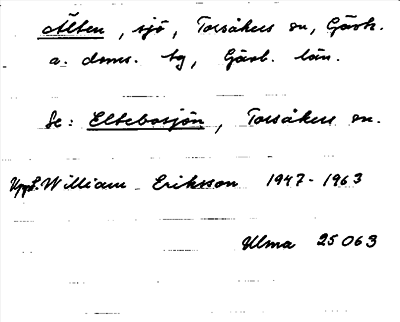 Älten, sjö, Torsåkers sn, Gävb.
a. doms. tg, Gävl. län.
Se: Eltebosjön, Torsåkers sn.
Uppt. William Eriksson 1947-1963
Ulma 25063